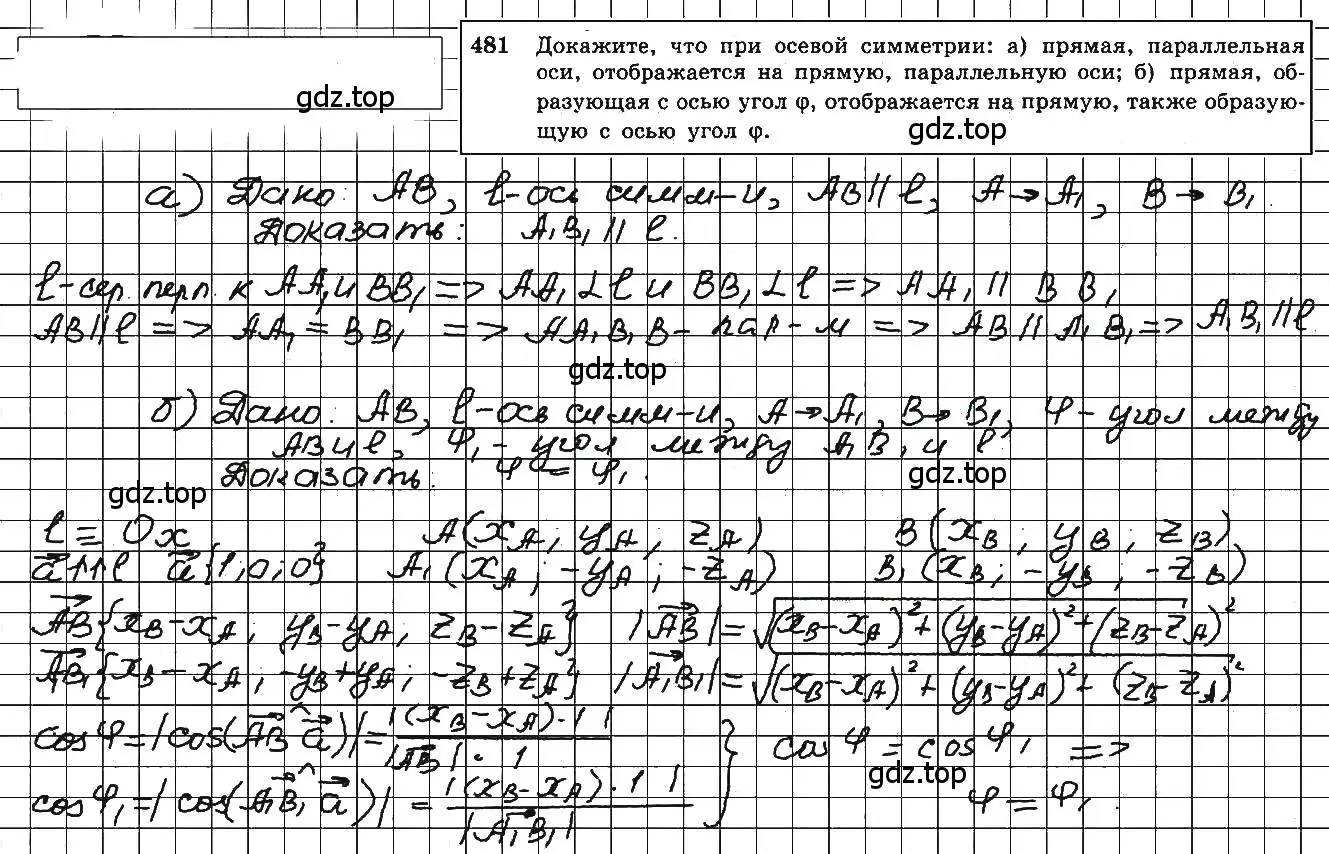 481 Докажите, что при осевой симметрии: а) прямая, параллельная
оси, отображается на прямую, параллельную оси; б) прямая, об-
разующая с осью угол φ, отображается на прямую, также образую-
щую с осью угол φ.
gdz.top
gdz.top
а) Дано: AB, l-ось симм-и, AB || l, A → A₁, B → B₁.
Доказать: A₁B₁ || l.
l-сер. перп. к AA₁ и BB₁ => AA₁ ⊥ l и BB₁ ⊥ l => AA₁ || BB₁
AB || l => AA₁ = BB₁ => AA₁B₁B - пар-м => AB || A₁B₁ => A₁B₁ || l
gdz.top
б) Дано: AB, l-ось симм-и, A → A₁, B → B₁, φ - угол между
AB и l, φ₁ - угол между A₁B₁ и l
Доказать: φ = φ₁.
gdz.top
gdz.top
l ≡ Ox A(x_A; y_A; z_A) B(x_B; y_B; z_B)
a⃗ ↑↑ l a⃗{1; 0; 0} A₁(x_A; -y_A; -z_A) B₁(x_B; -y_B; -z_B)
AB⃗{x_B-x_A; y_B-y_A; z_B-z_A} |AB⃗| = √((x_B-x_A)²+(y_B-y_A)²+(z_B-z_A)²
A₁B₁⃗{x_B-x_A; -y_B+y_A; -z_B+z_A} |A₁B₁⃗| = √((x_B-x_A)²+(y_B-y_A)²+(z_B-z_A)²
cos φ = |cos(AB⃗ ^ a⃗)| = |(x_B-x_A)·1| / |AB⃗|·1 } cos φ = cos φ₁ =>
gdz.top
cos φ₁ = |cos(A₁B₁⃗ ^ a⃗)| = |(x_B-x_A)·1| / |A₁B₁⃗| φ = φ₁.